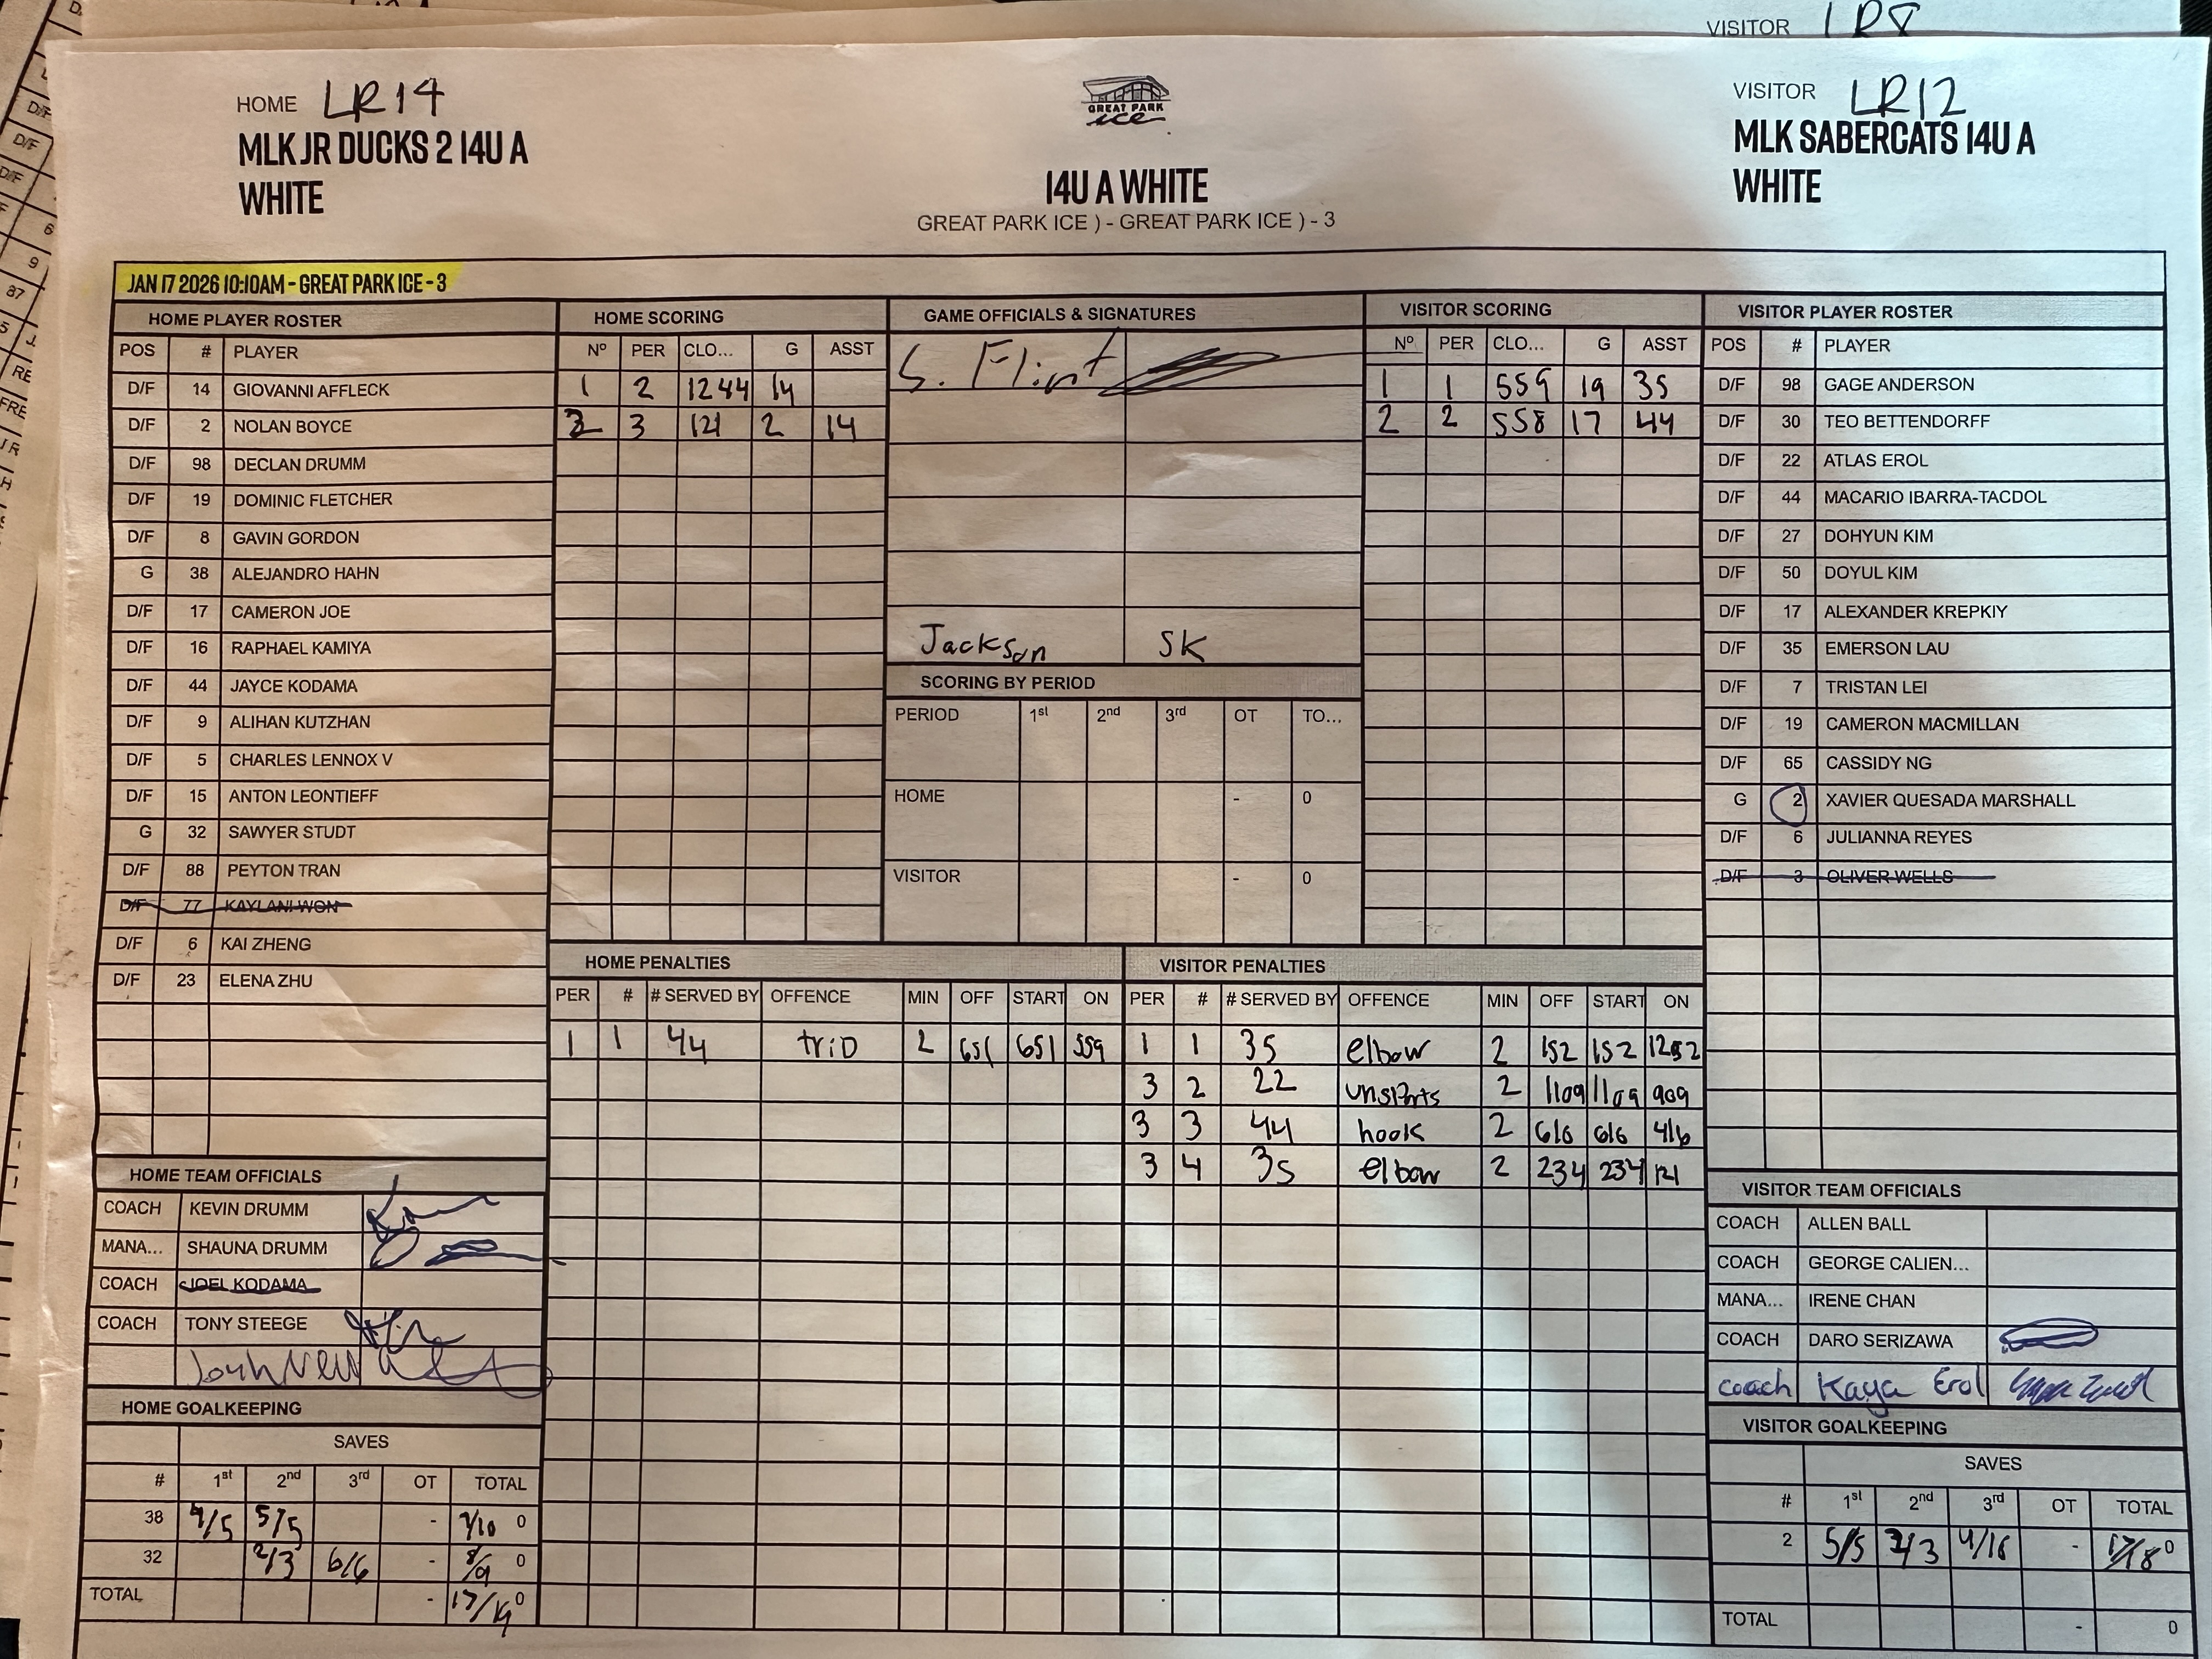 VISITOR LR8
HOME LR14
MLK JR DUCKS 2 14U A
WHITE
GREAT PARK
ice
14U A WHITE
GREAT PARK ICE ) - GREAT PARK ICE ) - 3
VISITOR LR12
MLK SABERCATS 14U A
WHITE
JAN 17 2026 10:10AM - GREAT PARK ICE - 3
HOME PLAYER ROSTER
POS # PLAYER
D/F 14 GIOVANNI AFFLECK
D/F 2 NOLAN BOYCE
D/F 98 DECLAN DRUMM
D/F 19 DOMINIC FLETCHER
D/F 8 GAVIN GORDON
G 38 ALEJANDRO HAHN
D/F 17 CAMERON JOE
D/F 16 RAPHAEL KAMIYA
D/F 44 JAYCE KODAMA
D/F 9 ALIHAN KUTZHAN
D/F 5 CHARLES LENNOX V
D/F 15 ANTON LEONTIEFF
G 32 SAWYER STUDT
D/F 88 PEYTON TRAN
D/F 77 KAYLANI WON
D/F 6 KAI ZHENG
D/F 23 ELENA ZHU
HOME SCORING
Nº PER CLO... G ASST
1 2 1244 14
2 3 121 2 14
GAME OFFICIALS & SIGNATURES
S. Flint
Jackson SK
SCORING BY PERIOD
PERIOD 1st 2nd 3rd OT TO...
HOME - 0
VISITOR - 0
VISITOR SCORING
Nº PER CLO... G ASST
1 1 559 19 35
2 2 558 17 44
VISITOR PLAYER ROSTER
POS # PLAYER
D/F 98 GAGE ANDERSON
D/F 30 TEO BETTENDORFF
D/F 22 ATLAS EROL
D/F 44 MACARIO IBARRA-TACDOL
D/F 27 DOHYUN KIM
D/F 50 DOYUL KIM
D/F 17 ALEXANDER KREPKIY
D/F 35 EMERSON LAU
D/F 7 TRISTAN LEI
D/F 19 CAMERON MACMILLAN
D/F 65 CASSIDY NG
G 2 XAVIER QUESADA MARSHALL
D/F 6 JULIANNA REYES
D/F 3 OLIVER WELLS
HOME PENALTIES
PER # # SERVED BY OFFENCE MIN OFF START ON
1 1 44 trip 2 651 651 559
VISITOR PENALTIES
PER # # SERVED BY OFFENCE MIN OFF START ON
1 1 35 elbow 2 152 152 1252
3 2 22 unsprts 2 1109 1109 909
3 3 44 hook 2 616 616 416
3 4 35 elbow 2 234 234 121
HOME TEAM OFFICIALS
COACH KEVIN DRUMM
MANA... SHAUNA DRUMM
COACH JOEL KODAMA
COACH TONY STEEGE
HOME GOALKEEPING
SAVES
# 1st 2nd 3rd OT TOTAL
38 4/5 5/5 - 9/10 0
32 2/3 6/6 - 8/9 0
TOTAL - 17/19 0
VISITOR TEAM OFFICIALS
COACH ALLEN BALL
COACH GEORGE CALIEN...
MANA... IRENE CHAN
COACH DARO SERIZAWA
coach Kaya Erol
VISITOR GOALKEEPING
SAVES
# 1st 2nd 3rd OT TOTAL
2 5/5 2/3 - 0
TOTAL - 0